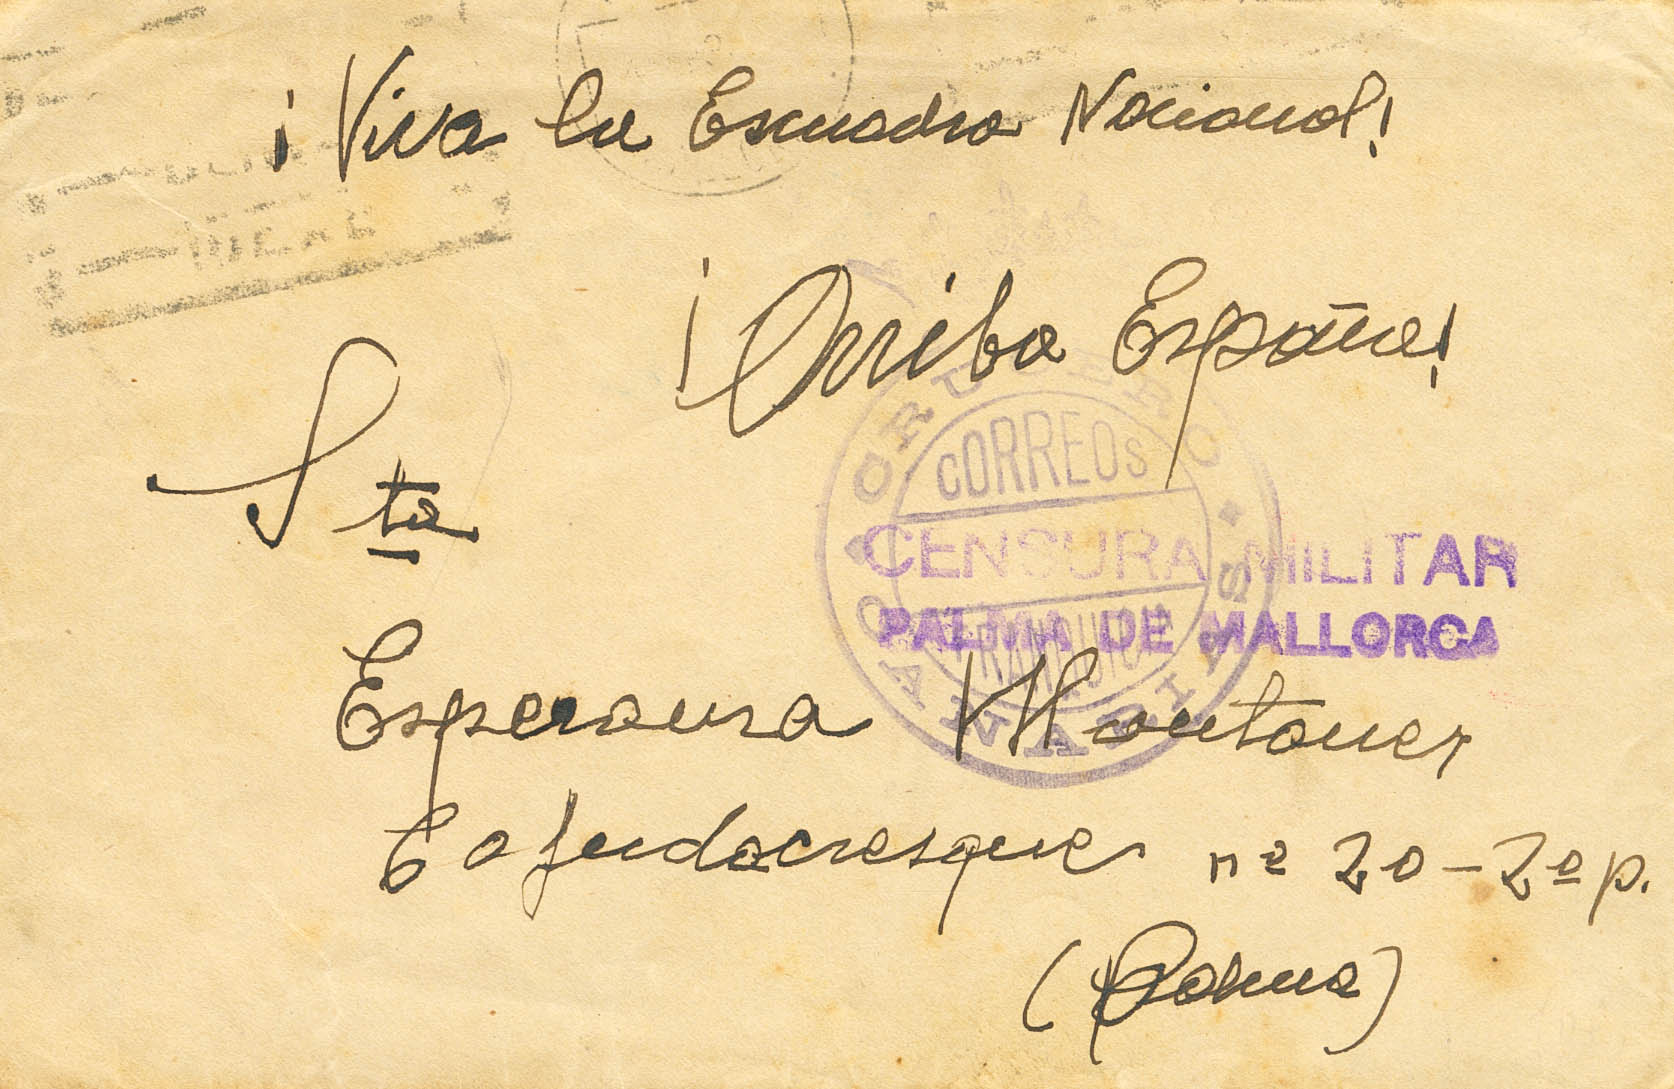 ¡Viva la Escuadra Nacional!
¡Arriba España!
Sta
CRUCERO CANARIAS
CORREOS
FRANQUICIA
CENSURA MILITAR
PALMA DE MALLORCA
Esperanza Montaner
Cafudacresques nº 20-2º p.
(Palma)